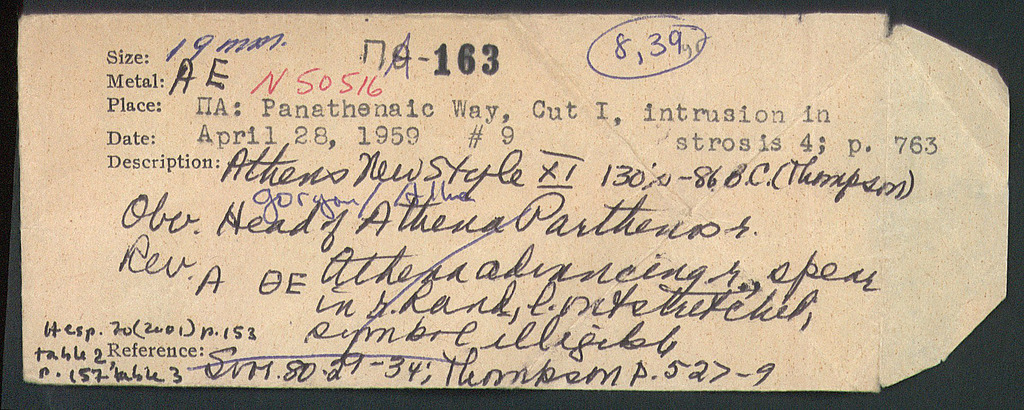 Size: 19 mm. ΠΑ-163 8,39
Metal: AE N 50516
Place: ΠΑ: Panathenaic Way, Cut I, intrusion in
Date: April 28, 1959 #9 strosis 4; p. 763
Description: Athens New Style XI 130's-86 B.C. (Thompson)
gorgon /
Obv. Head of Athena Parthenos r.
Rev. A ΘE Athena advancing r., spear
in r. hand, l. outstretched,
symbol illegible
Hesp. 70 (2001) p. 153
table 2
Reference: Svor. 80.29-34; Thompson p. 527-9
p. 157 table 3